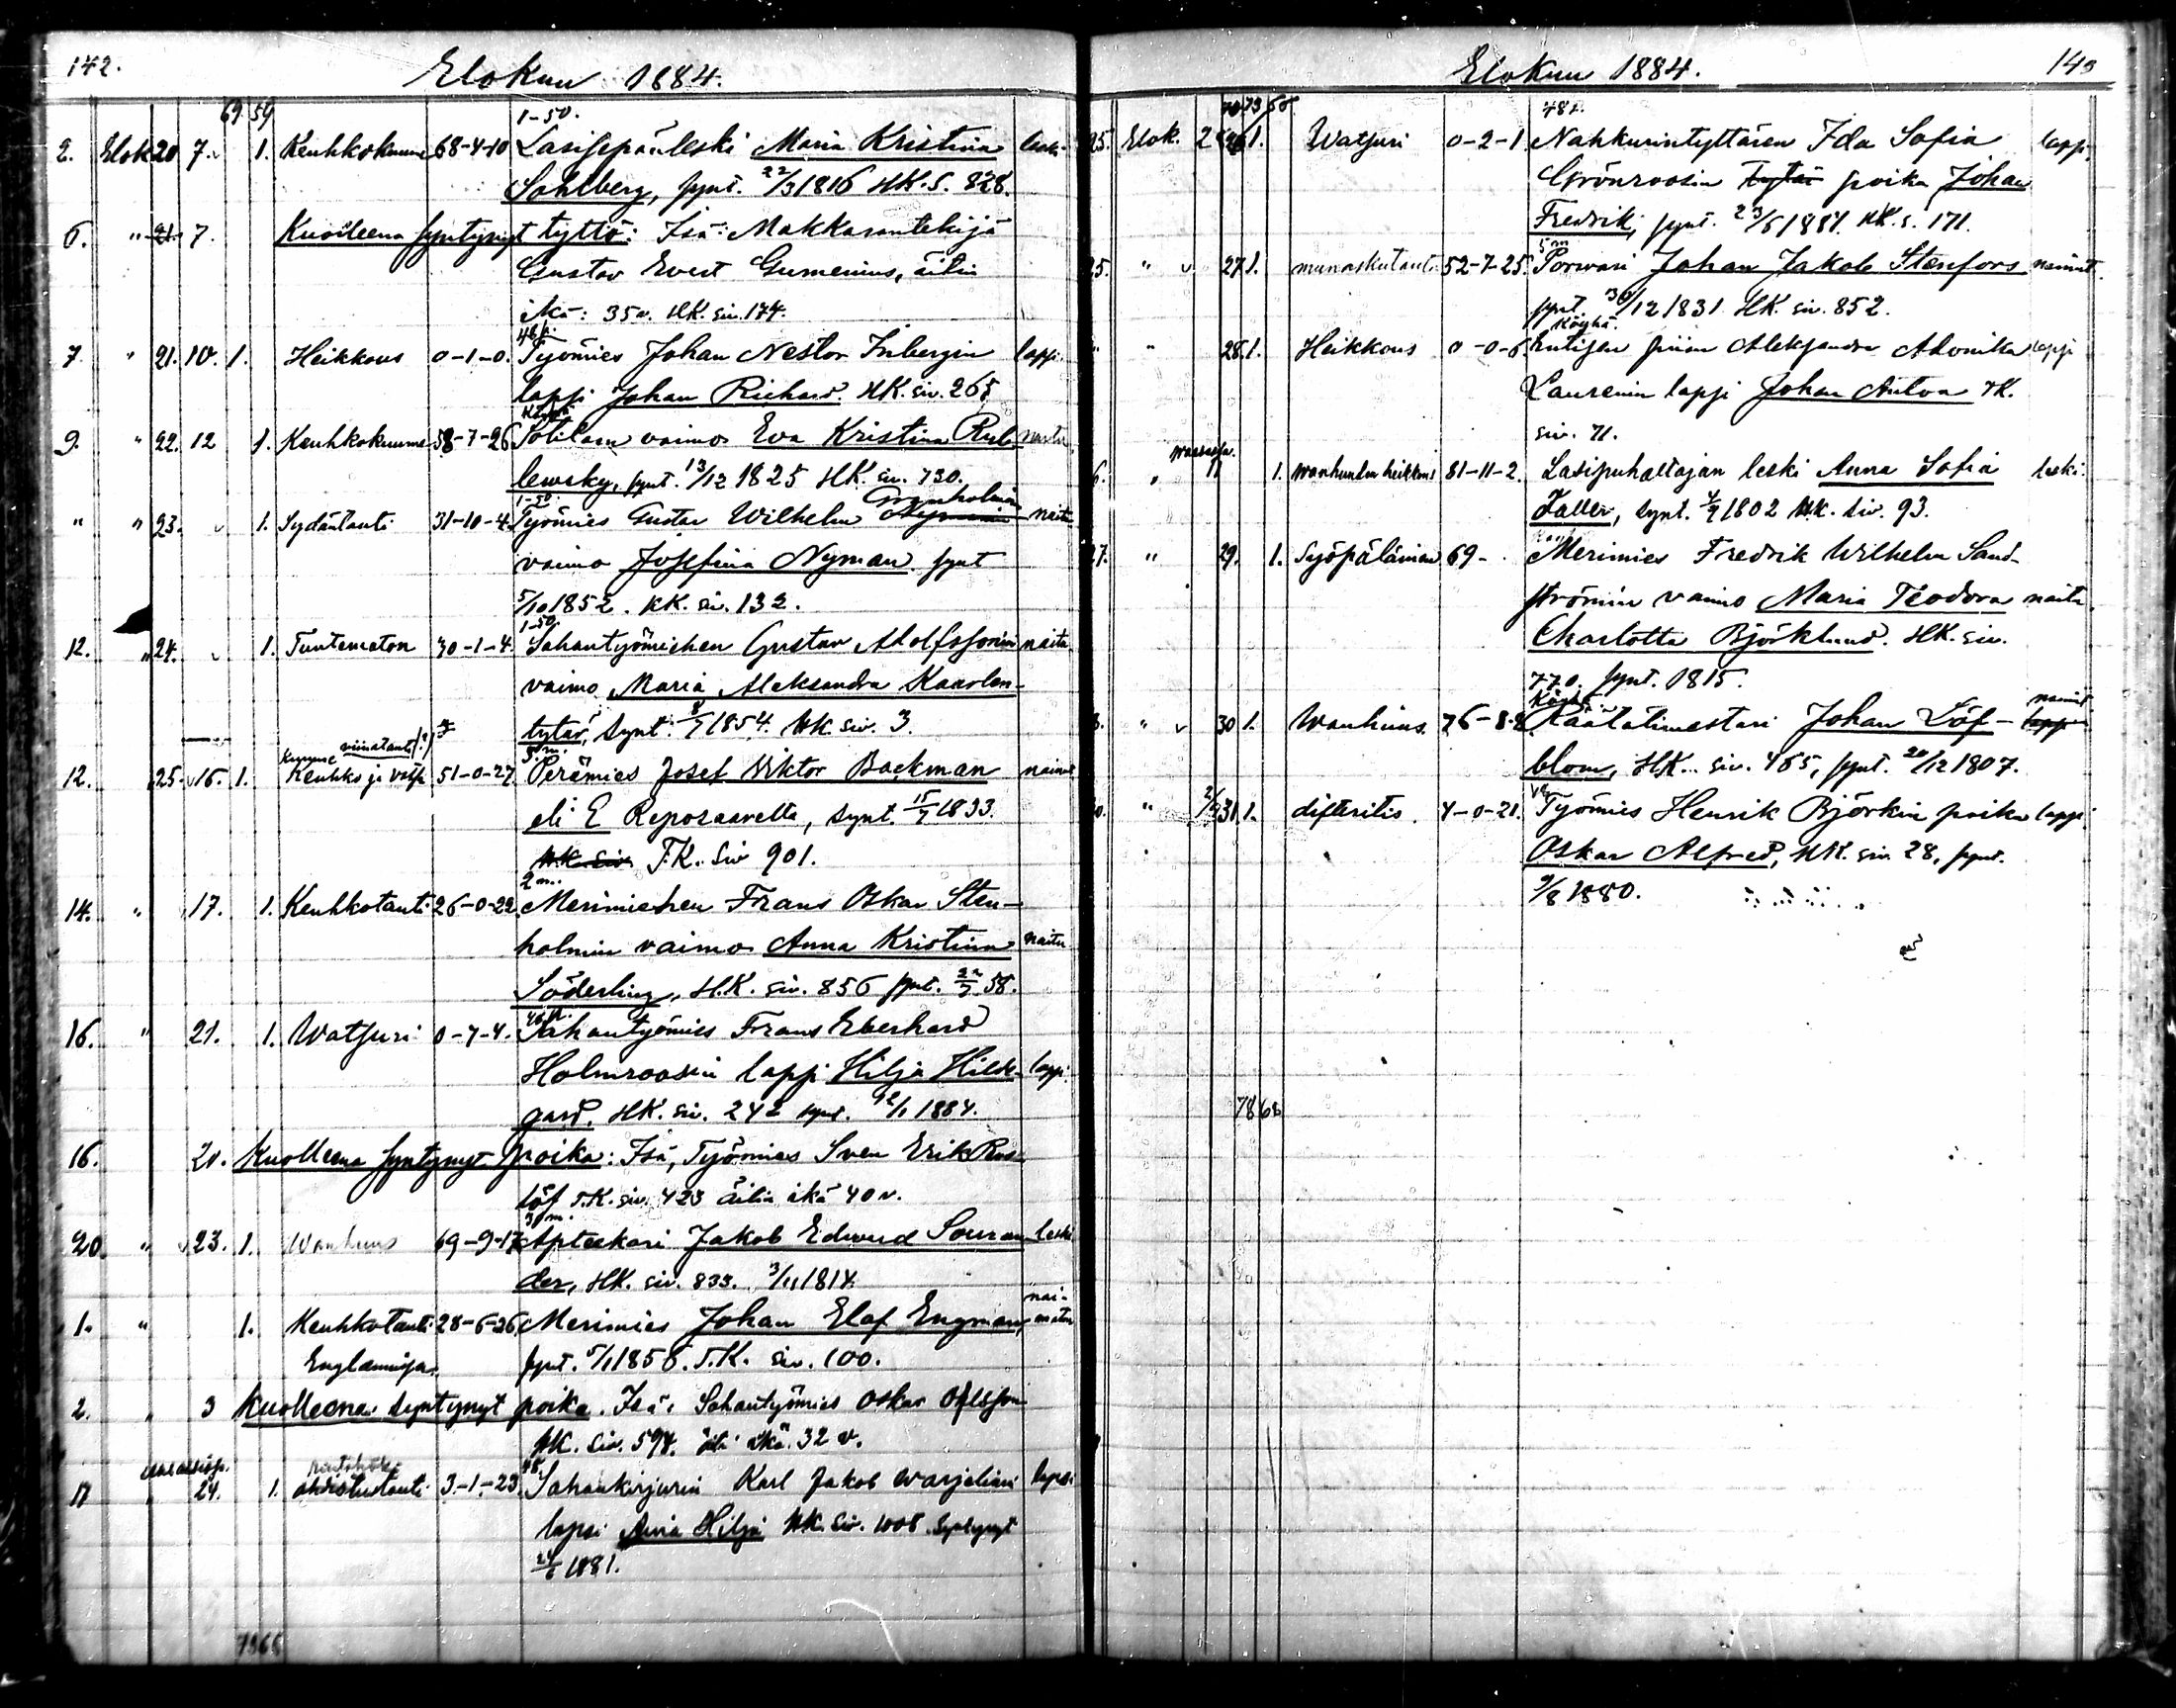 142.
Elokuu 1884.
69 59
1-50.
2. Elok 20 7. 1. Keuhkokuume 68-4-10 Lasisepänleski Maria Kristina leski
Sohlberg, synt. 22/3 1816 HK. S. 828.
6. " 21. 7. Kuolleena syntynyt tyttö: Isä: Makkarantekijä
Gustav Evert Gumenius, äitin
ikä: 35 v. HK. siv. 174.
48 p.
7. " 21. 10. 1. Heikkous 0-1-0. Työmies Johan Nestor Inbergin lapsi
lapsi Johan Richard. HK. siv. 265
Köyhä
9. " 22. 12 1. Keuhkokuume 58-7-26 Sotilaan vaimo Eva Kristina Rub- naitu
lewsky, synt. 13/12 1825 HK. siv. 730.
1-50. Granholmin
" " 23. 1. Sydäntauti 31-10-4. Työmies Gustav Wilhelm naitu
vaimo Josefina Nyman synt
5/10 1852. HK. siv. 132.
1-50
12. " 24. 1. Tuntematon 30-1-4. Sahantyömiehen Gustav Adolfssonin naitu
vaimo Maria Aleksandra Kaarlen-
tytär, synt. 8/7 1854. HK. siv. 3.
viinatauti (?) 3 m.
12. 25. 16. 1. Keuhko ja 51-0-27 Perämies Josef Viktor Backman nainut
eli E Reposaarelta, synt. 15/7 1833.
HK. siv T.K. Siv 901.
2 m.
14. " 17. 1. Keuhkotauti 26-0-22 Merimiehen Frans Oskar Sten-
holmin vaimo Anna Kristina naitu
Söderling, H.K. siv. 856 synt. 22/7 58.
48 p.
16. " 21. 1. Watsuri 0-7-4. Sahantyömies Frans Eberhard
Holmroosin lapsi Hilja Hilde- lapsi.
gard. HK. siv. 242 synt. 12/1 1884.
16. 20. Kuolleena syntynyt poika: Isä, Työmies Sven Erik Ros-
löf T.K. siv. 423 äitin ikä 40 v.
3 m.
20 " 23. 1. Wanhuus 69-9-17 Apteekari Jakob Edvard Souran- leski
der, HK. siv. 833. 3/11 1814.
nai-
1. " 1. Keuhkotauti 28-6-26 Merimies Johan Elof Engman, maton
Englannissa. synt. 5/1 1856. T.K. siv. 100.
2. " 3 Kuolleena syntynyt poika. Isä: Sahantyömies Oskar Ollsson
HK. siv. 594. äiti ikä. 32 v.
48.
17 " 24. 1. 3-1-23. Sahankirjurin Karl Jakob Warjelian lapsi
lapsi Aina Hilja HK. Siv. 1008. Syntynyt
1881.
Elokuu 1884.
73 68
48 p.
25. Elok. 26 1. Watsuri 0-2-1 Nahkurintyttären Ida Sofia lapsi
Grönroosin tytär poika Johan
Fredrik, synt. 23/6 1884. HK. s. 171.
5 m
25. " 27 1. munaskutauti 52-7-25 Porwari Johan Jakob Stenfors nainut
synt. 30/12 1831 HK. siv. 852.
Köyhä.
" " 28. 1. Heikkous 0-0-6. Entisen piian Aleksandra Adonika lapsi
Laurenin lapsi Johan Anton TK.
siv. 71.
Waasassa.
6. " 11 1. Wanhuuden heikkous 81-11-2. Lasipuhaltajan leski Anna Sofia leski.
Faller, synt. 1802 HK. siv. 93.
27. " 29. 1. Syöpäläinen 69- Merimies Fredrik Wilhelm Sand-
strömin vaimo Maria Teodora naitu
Charlotta Björklund. HK. siv.
770. synt. 1815.
Köyhä nainut
" 30 1. Wanhuus. 76-8-8. Räätälimestari Johan Löf- lapsi
blom, HK. siv. 465, synt. 20/12 1807.
" 31. 1. difteritis. 4-0-21. Työmies Henrik Björkin poika lapsi
Oskar Alfred, HK. siv. 28, synt.
9/8 1880.
78 68